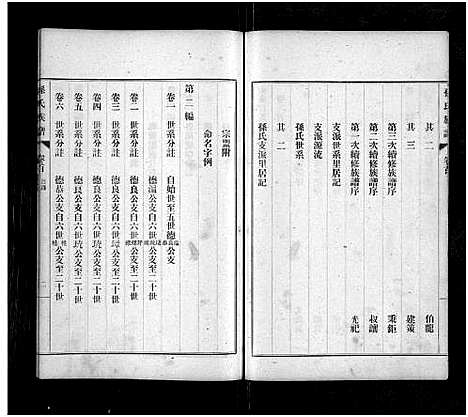 孫氏族譜
卷首
其二 伯龍
其三 建策
第二次續修族譜序 秉鉅
第一次續修族譜序 叔讓
支派世系里居記 光祀
支派源流
孫氏世系
其二
孫氏支派里居記
宗盟附
命名字例
第二編
卷一 世系分註 自始世至五世德公支
卷二 世系分註 德溫公支自六世
卷三 世系分註 德良公支自六世琦公支至二十世
卷四 世系分註 德良公支自六世琦公支至二十世
卷五 世系分註 德良公支自六世琦公支至二十世
卷六 世系分註 德恭公支自六世公支至二十世
孫氏族譜
卷首